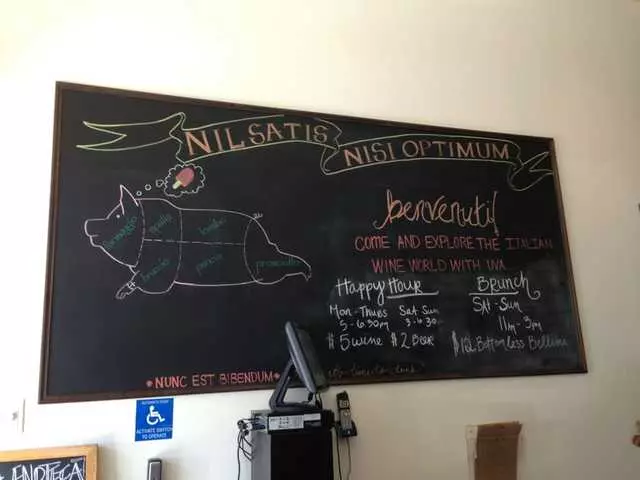 NIL SATIS
NISI OPTIMUM
benvenuti!
COME AND EXPLORE THE ITALIAN
WINE WORLD WITH UVA
Happy Hour
Mon - Thurs Sat Sun
5 - 6:30pm 3 - 4:30
$5 wine $2 Beer
Brunch
Sat - Sun
11am - 3pm
Bottomless Bellini
spalla
lombo
braccio
pancia
prosciutto
* NUNC EST BIBENDUM *
ACTIVATE SWITCH
TO OPERATE
ENOTECA